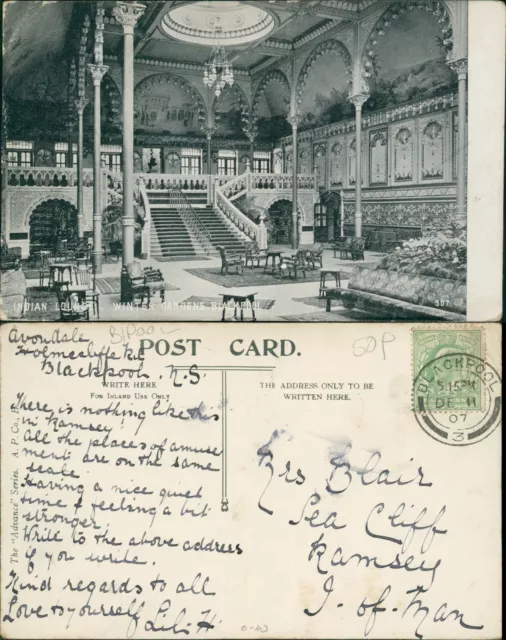 INDIAN LOUNGE WINTER GARDENS, BLACKPOOL
587
B/POOL
50P
Avondale
Holmecliffe Rd
Blackpool. N.S.
POST CARD.
WRITE HERE
For Inland Use Only
THE ADDRESS ONLY TO BE
WRITTEN HERE.
BLACKPOOL
5.15 PM
DE 11
07
3
There is nothing like this
in Ramsey!
all the places of amuse
ment are on the same
scale.
Having a nice quiet
time & feeling a bit
stronger.
Write to the above address
if you write.
Kind regards to all
Love to yourself Lil. H.
Mrs Blair
Sea Cliff
Ramsey
I-of-Man
The "Advance" Series. A. P. Co.